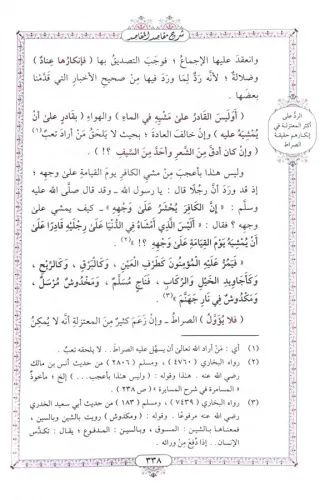 شرح مقاصد المقاصد
وانعقدَ عليها الإجماعُ؛ فوجَبَ التصديقُ بها (فإنكارُها عِنادٌ)
وضلالةٌ؛ لأنه ردٌّ لِمَا ورَدَ فيها مِنْ صحيحِ الأخبارِ التي قدَّمْنا
بعضَها.
الردُّ على
أكثر المعتزلة في
إنكارهم حقيقة
الصراط
(أَوَلَيسَ القادرُ على مَشْيِهِ في الماءِ) والهواءِ (بقادرٍ على أنْ
يُمْشِيَهُ عليه) وإنْ خالفَ العادةَ؛ بحيث لا يَلحَقُ مَنْ أرادَ تعبٌ(١)
(وإن كان أدقَّ مِنَ الشَّعرِ وأحدَّ مِنَ السَّيفِ؟!).
وليس هذا بأعجبَ مِنْ مشيِ الكافرِ يومَ القيامةِ على وجهِهِ؛
إذ قد ورَدَ أنَّ رجُلًا قال: يا رسولَ الله - وقد قال صلَّى الله عليه
وسلَّم: «إِنَّ الكَافِرَ يُحْشَرُ عَلَىٰ وَجْهِهِ» - كيف يمشي على
وجهِهِ؟ فقال: «أَلَيْسَ الَّذِي أَمْشَاهُ فِي الدُّنْيَا عَلَىٰ رِجْلَيْهِ قَادِرًا عَلَىٰ
أَنْ يُمْشِيَهُ يَوْمَ القِيَامَةِ عَلَىٰ وَجْهِهِ؟!»(٢).
«فَيَمُرُّ عَلَيْهِ المُؤْمِنُونَ كَطَرْفِ العَيْنِ، وَكَالبَرْقِ، وَكَالرِّيحِ،
وَكَأَجَاوِيدِ الخَيْلِ وَالرِّكَابِ، فَنَاجٍ مُسَلَّمٌ، وَمَخْدُوشٌ مُرْسَلٌ،
وَمَكْدُوشٌ فِي نَارِ جَهَنَّمَ»(٣).
(فلا يُؤَوَّلُ) الصراطُ - وإنْ زعَمَ كثيرٌ مِنَ المعتزلةِ أنه لا يُمكِنُ
(١) أي: مَنْ أراد الله تعالى أن يسهِّل عليه الصراط.. لا يلحقه تعبٌ.
(٢) رواه البخاري (٤٧٦٠)، ومسلم (٢٨٠٦) من حديث أنس بن مالك
رضي الله عنه. هذا وقوله: (وليس هذا بأعجب...) إلخ؛ مأخوذٌ
«المسامرة في شرح المسايرة» (ص ٢٣٨).
(٣) رواه البخاري (٧٤٣٩)، ومسلم (١٨٣) من حديث أبي سعيد الخدري
رضي الله عنه مرفوعًا. وقوله: (ومكدوش) رويت بالشين وبالسين،
فمعناها بالشين: المسوق، وبالسين: المدفوع؛ يقال: تكدَّس
الإنسان.. إذا دُفِعَ مِنْ ورائه.
٣٣٨